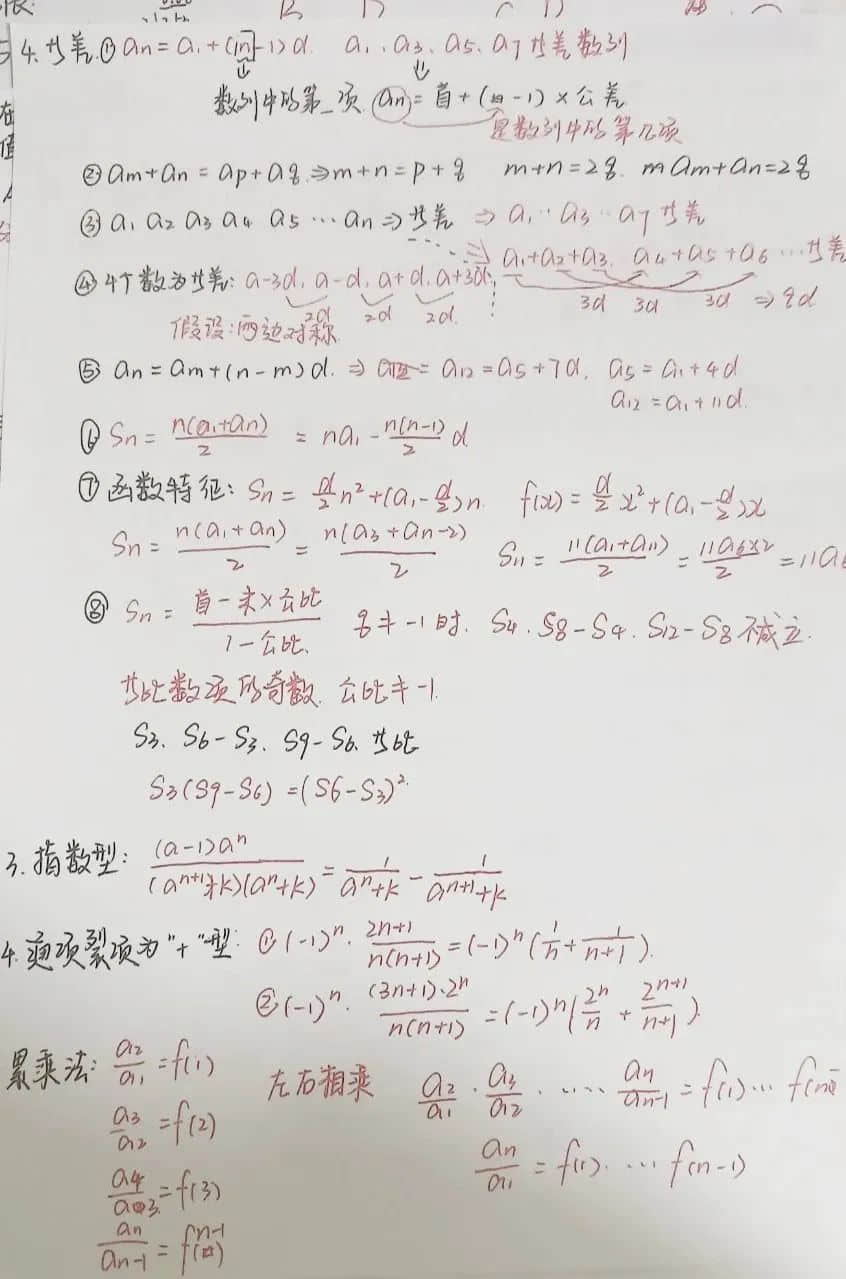 4. 等差 ① an = a1 + (n-1)d a1、a3、a5、a7 等差数列
数列中的第_项 an = 首 + (n-1)×公差
是数列中的第几项
② am+an = ap+aq ⇒ m+n = p+q m+n=2q. am+an=2q
③ a1 a2 a3 a4 a5 … an ⇒ 等差 ⇒ a1 ‥ a3 ‥ a7 等差
⇒ a1+a2+a3、a4+a5+a6 … 等差
④ 4个数为等差: a-3d、a-d、a+d、a+3d
2d 2d 2d. 3d 3d 3d ⇒ 9d
假设:两边对称
⑤ an = am+(n-m)d. ⇒ a12 = a5+7d. a5 = a1+4d
a12 = a1+11d.
⑥ Sn = n(a1+an)/2 = na1 - n(n-1)/2 d
⑦ 函数特征: Sn = d/2 n²+(a1-d/2)n. f(x) = d/2 x²+(a1-d/2)x
Sn = n(a1+an)/2 = n(a3+an-2)/2 S11 = 11(a1+a11)/2 = 11a6×2/2 = 11a6
⑧ Sn = 首-末×公比/1-公比 q≠-1时. S4、S8-S4、S12-S8 不成立.
等比数项的奇数、公比≠-1.
S3、S6-S3、S9-S6、等比
S3(S9-S6) = (S6-S3)²
3. 指数型: (a-1)aⁿ/(aⁿ⁺¹+k)(aⁿ+k) = 1/aⁿ+k - 1/aⁿ⁺¹+k
4. 裂项为"+"型: ① (-1)ⁿ· 2n+1/n(n+1) = (-1)ⁿ(1/n + 1/n+1).
② (-1)ⁿ· (3n+1)·2ⁿ/n(n+1) = (-1)ⁿ(2ⁿ/n + 2ⁿ⁺¹/n+1).
累乘法: a2/a1 = f(1) 左右相乘 a2/a1 · a3/a2 · ‥‥ an/an-1 = f(1)…
a3/a2 = f(2)
an/a1 = f(1)· … f(n-1)
a4/a3 = f(3)
an/an-1 = f(n-1)